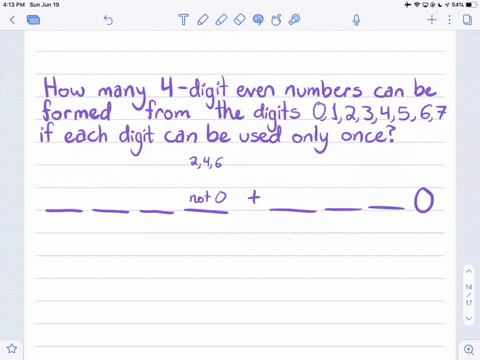 4:13 PM Sun Jun 19
54%
How many 4-digit even numbers can be
formed from the digits 0,1,2,3,4,5,6,7
if each digit can be used only once?
2,4,6
not 0 + 0
14
/
17